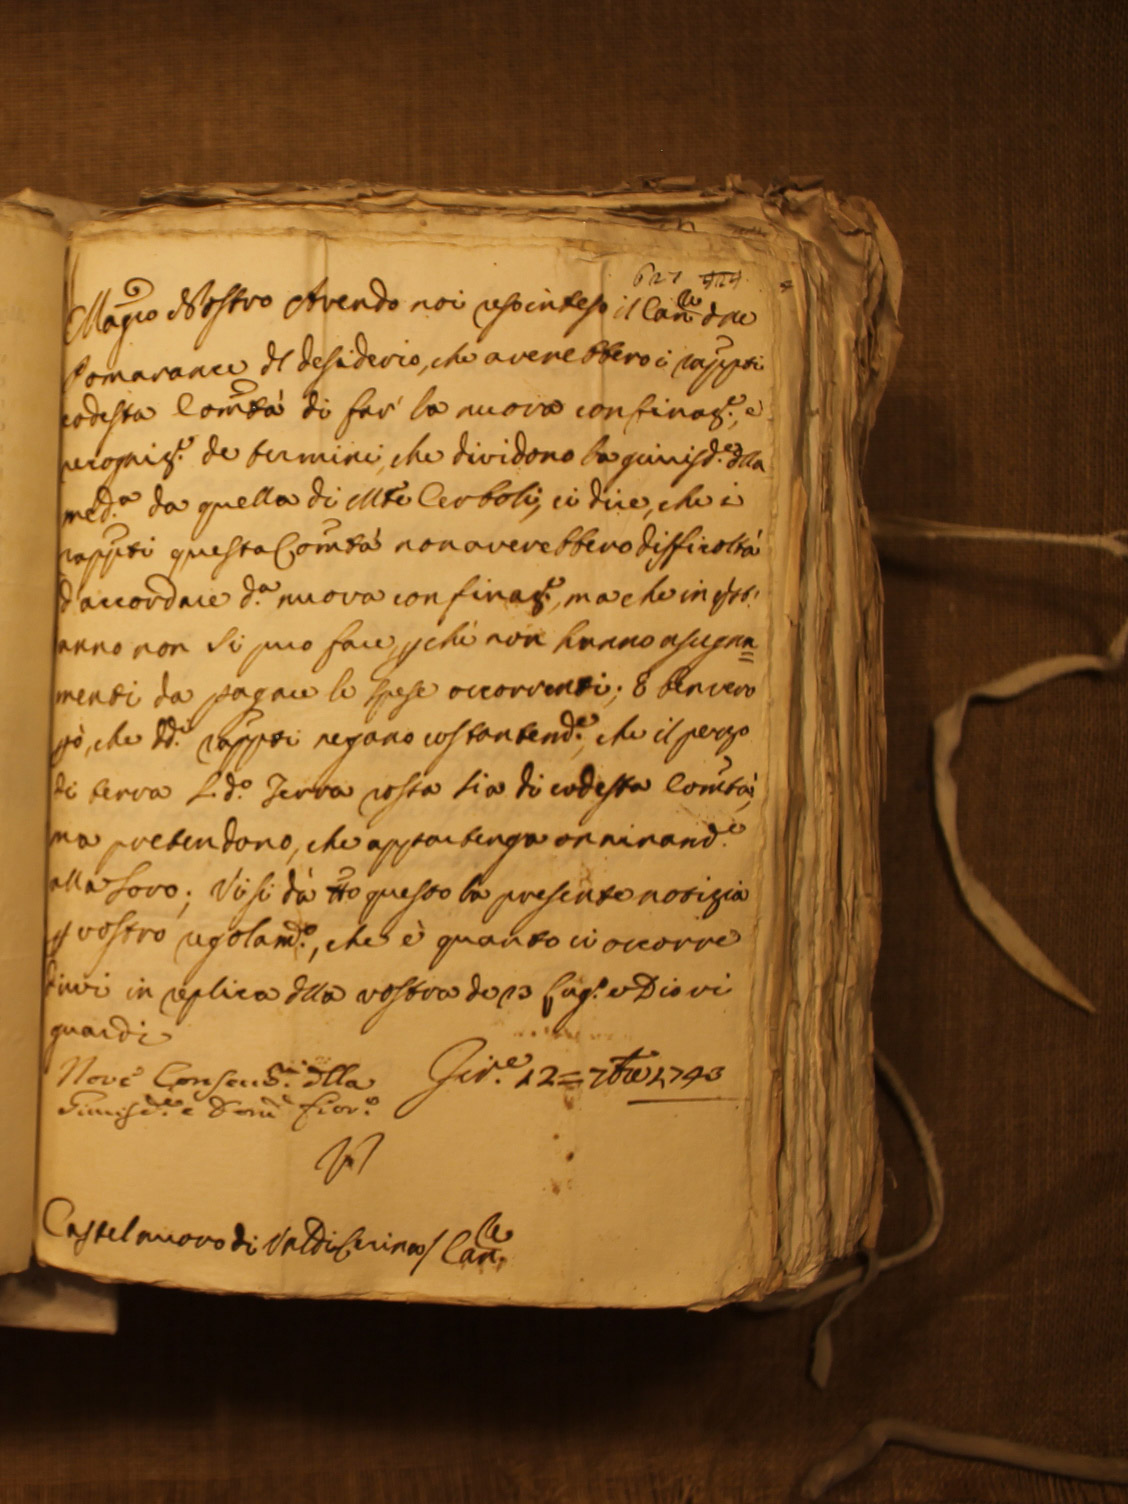 627 424
Mag.co Nostro Avendo noi reso inteso il Canre dlle
Pomarance dl desiderio, che averebbero i rapp.ti
codesta Com.tà di far la nuova confinaz.e, e
recogniz.e de termini, che dividono la giurisd.e dlla
med.a da quella di Mte Cerboli, ci dice, che i
rapp.ti questa Com.tà non averebbero difficoltà
d'accordare d.a nuova confinaz.e, ma che in qst.
anno non si puo fare, pchè non hanno asegna=
menti da pagare le spese occorrenti; È ben vero
pò, che dd.i rapp.ti negano costantem.e, che il pezzo
di terra L.d.o Terra rossa sia di codesta Com.tà,
ma pretendono, che appartenga onninam.e
alla loro; Vi si dà tto questo la presente notizia
p vostro regolam.o, che è quanto ci occorre
dirvi in replica dlla vostra de 13 Lug.o e Dio vi
guardi
Nove Conserv.ri dlla Fir.e 12 = 7bre 1743
Giurisd.e e Dom.o Fior.o
Castelnuovo di Val di Cecina / Canre